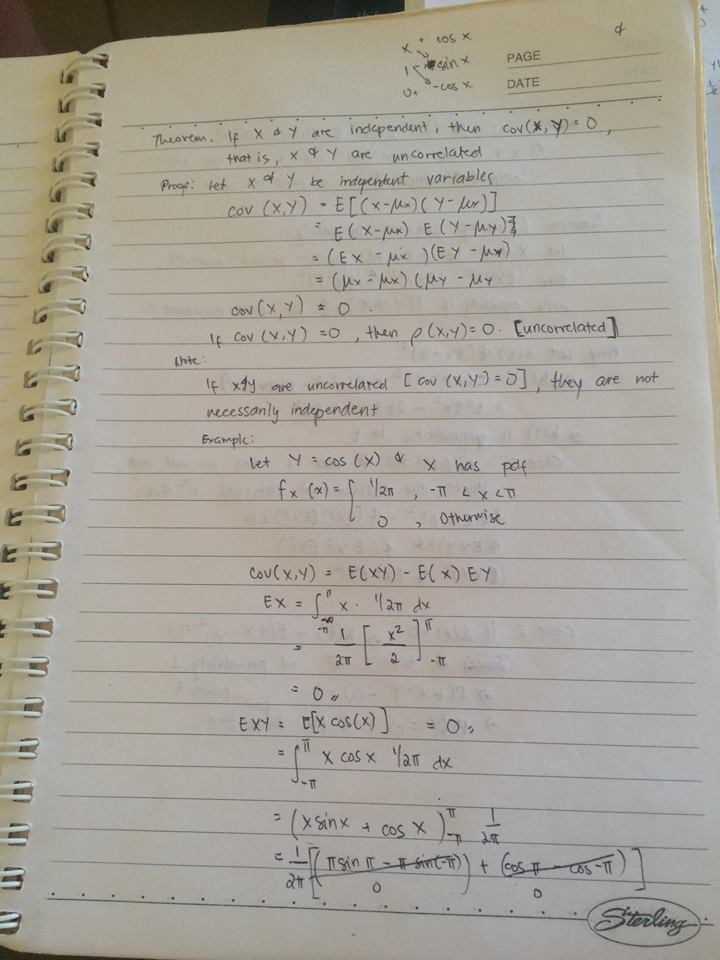 x + cos x
1 - sin x
0 + -cos x
PAGE
DATE
Theorem. If X & Y are independent, then cov(X, Y) = 0,
that is, X & Y are uncorrelated
Proof: Let X & Y be independent variables
cov (X,Y) = E[(X-μx)(Y-μy)]
= E(X-μx) E(Y-μy)
= (EX - μx)(EY - μy)
= (μx - μx)(μy - μy
cov(X,Y) = 0.
If cov(X,Y) = 0, then ρ(X,Y) = 0. [uncorrelated]
Note:
If X&Y are uncorrelated [cov (X,Y) = 0], they are not
necessarily independent
Example:
Let Y = cos (X) & X has pdf
fx (x) = { 1/2π , -π < x < π
0 , Otherwise
cov(X,Y) = E(XY) - E(X) EY
EX = ∫_{-π}^{π} x · 1/2π dx
= 1/2π [x²/2]_{-π}^{π}
= 0 //
EXY = E[X cos(X)] = 0 //
= ∫_{-π}^{π} x cos x 1/2π dx
= (x sin x + cos x)_{-π}^{π} 1/2π
= 1/2π [(π sin π - π sin(-π)) + (cos π - cos -π)]
0 0
Sterling